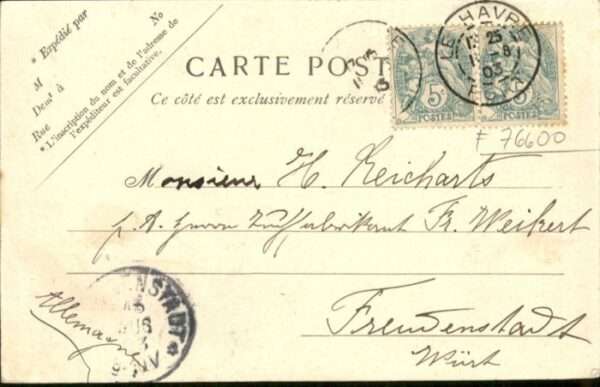 * Expédié par
No
M
Demt à
Rue
* L'inscription du nom et de l'adresse de
l'expéditeur est facultative.
CARTE POST
Ce côté est exclusivement réservé
5c
POSTES
LE HAVRE
25
03
F 76600
Monsieur H. Reicharts
Fr. Weikert
Freudenstadt
Würt
Allemagne